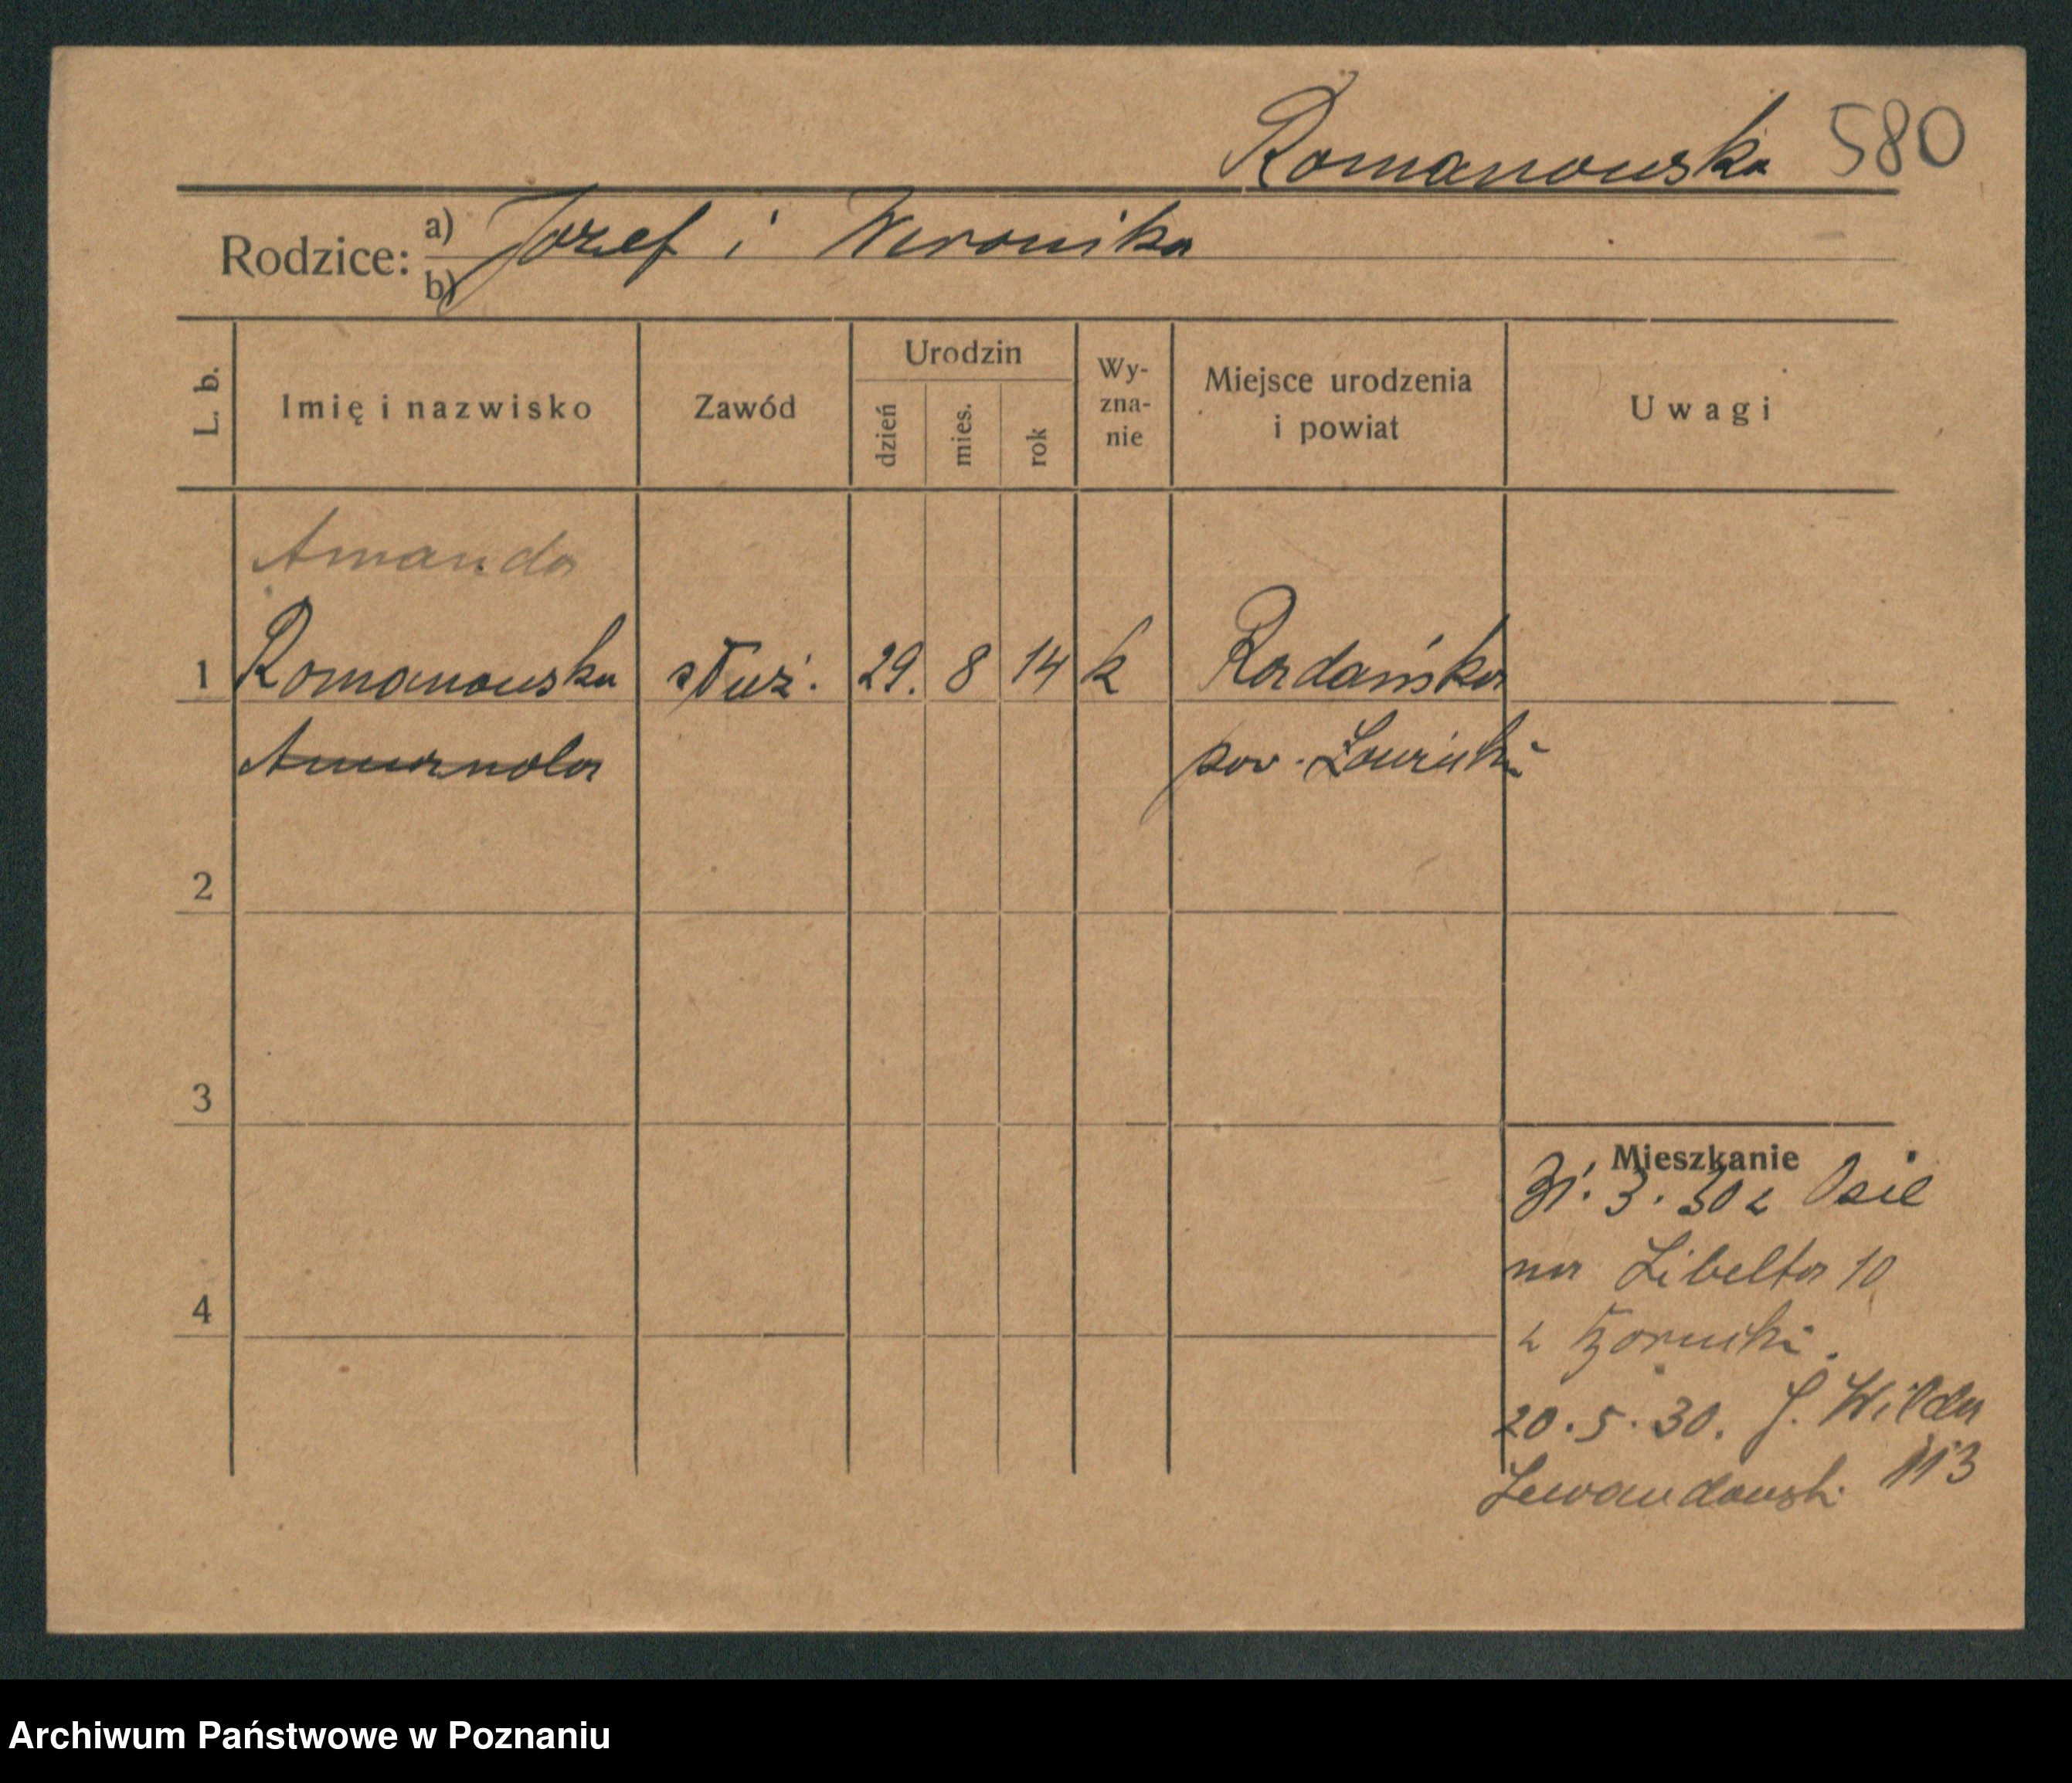 Romanowska 580
Rodzice: a) Józef i Weronika
b)
L. b. Imię i nazwisko Zawód Urodzin dzień mies. rok Wy-zna-nie Miejsce urodzenia i powiat Uwagi
Amanda
1 Romanowska służ. 29. 8 14 k
pow.
2
3
Mieszkanie
3. 30 z
na Libelta 10
4
z
20.5.30. G. Wilda
Lewandowski 113
Archiwum Państwowe w Poznaniu